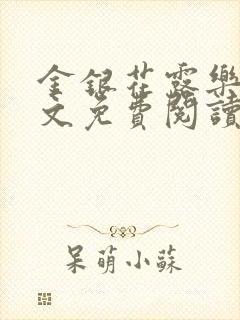 金銀花露樂
文免費閱讀
呆萌小蘇